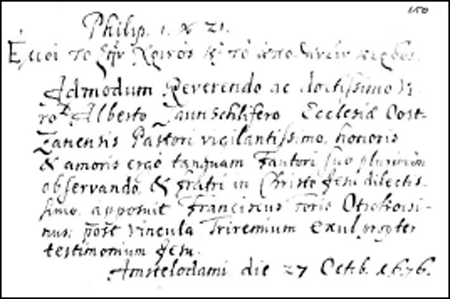 150
Philip. 1. v 21.
Ἐμοὶ τὸ ζῆν Χριϛὸς κ̀ τὸ ἀποθανεῖν κερδος.
Admodum Reverendo ac doctissimo Vi-
ro D. Alberto Zaunschlifero Ecclesiæ Oost-
Zanensis Pastori vigilantissimo, honoris
& amoris ergo tanquam Fautori suo plurimùm
observando, & fratri in Christo Jesu dilectis-
simo. apposuit Franciscus Foris Otrokocsi-
nus, post vincula Triremium Exul propter
testimonium Jesu.
Amstelodami die 27 Octb. 1676.